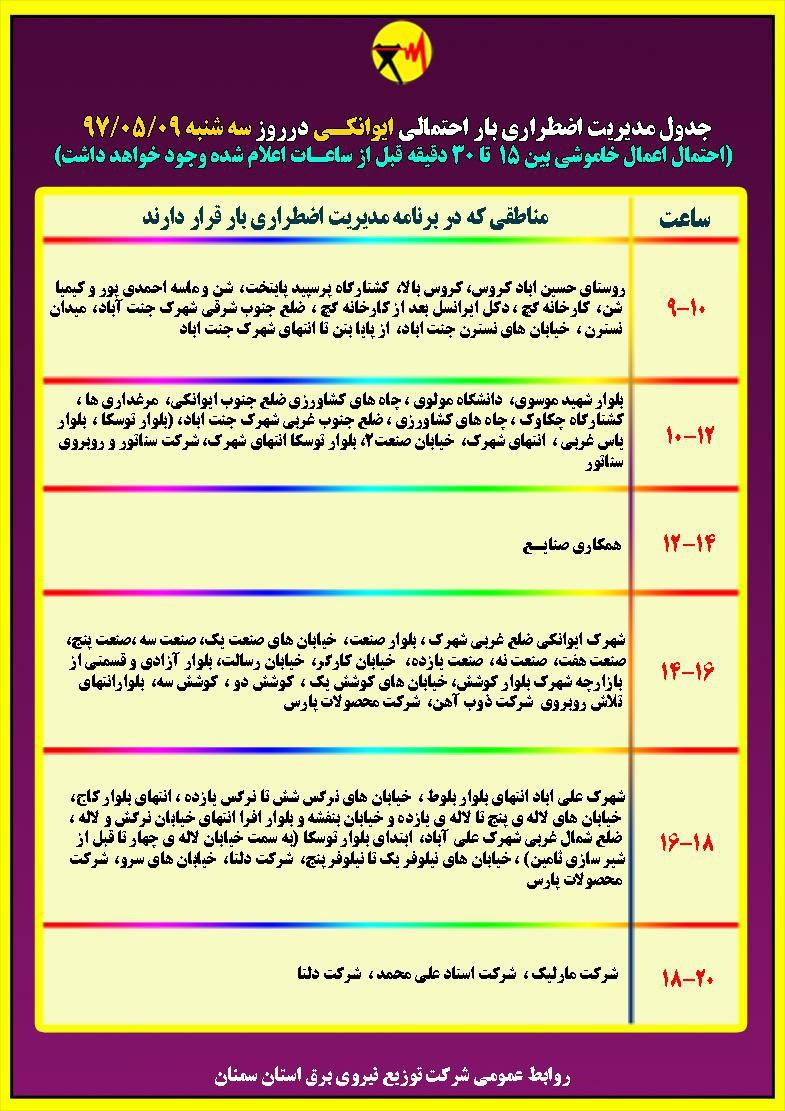 جدول مدیریت اضطراری بار احتمالی ایوانکـی درروز سه شنبه ۹۷/۰۵/۰۹
(احتمال اعمال خاموشی بین ۱۵ تا ۳۰ دقیقه قبل از ساعـات اعلام شده وجود خواهد داشت)
ساعت
مناطقی که در برنامه مدیریت اضطراری بار قرار دارند
۹-۱۰
روستای حسین اباد کروس، کروس بالا، کشتارگاه پرسپید پایتخت، شن و ماسه احمدی پور و کیمیا
شن، کارخانه گچ ، دکل ایرانسل بعد از کارخانه گچ ، ضلع جنوب شرقی شهرک جنت آباد، میدان
نسترن ، خیابان های نسترن جنت اباد، از پایا بتن تا انتهای شهرک جنت اباد
۱۰-۱۲
بلوار شهید موسوی، دانشگاه مولوی ، چاه های کشاورزی ضلع جنوب ایوانکی، مرغداری ها ،
کشتارگاه چکاوک ، چاه های کشاورزی ، ضلع جنوب غربی شهرک جنت اباد، (بلوار توسکا ، بلوار
یاس غربی ، انتهای شهرک، خیابان صنعت۲، بلوار توسکا انتهای شهرک، شرکت سناتور و روبروی
سناتور
۱۲-۱۴
همکاری صنایـع
۱۴-۱۶
شهرک ایوانکی ضلع غربی شهرک ، بلوار صنعت، خیابان های صنعت یک، صنعت سه ،صنعت پنج،
صنعت هفت، صنعت نه، صنعت یازده، خیابان کارگر، خیابان رسالت، بلوار آزادی و قسمتی از
بازارچه شهرک بلوار کوشش، خیابان های کوشش یک ، کوشش دو ، کوشش سه، بلوارانتهای
تلاش روبروی شرکت ذوب آهن، شرکت محصولات پارس
۱۶-۱۸
شهرک علی اباد انتهای بلوار بلوط ، خیابان های نرگس شش تا نرگس یازده ، انتهای بلوار کاج،
خیابان های لاله ی پنج تا لاله ی یازده و خیابان بنفشه و بلوار افرا انتهای خیابان نرگش و لاله ،
ضلع شمال غربی شهرک علی آباد، ابتدای بلوار توسکا (به سمت خیابان لاله ی چهار تا قبل از
شیر سازی ثامین) ، خیابان های نیلوفر یک تا نیلوفر پنج، شرکت دلتا، خیابان های سرو، شرکت
محصولات پارس
۱۸-۲۰
شرکت مارلیک ، شرکت استاد علی محمد ، شرکت دلتا
روابط عمومی شرکت توزیع نیروی برق استان سمنان